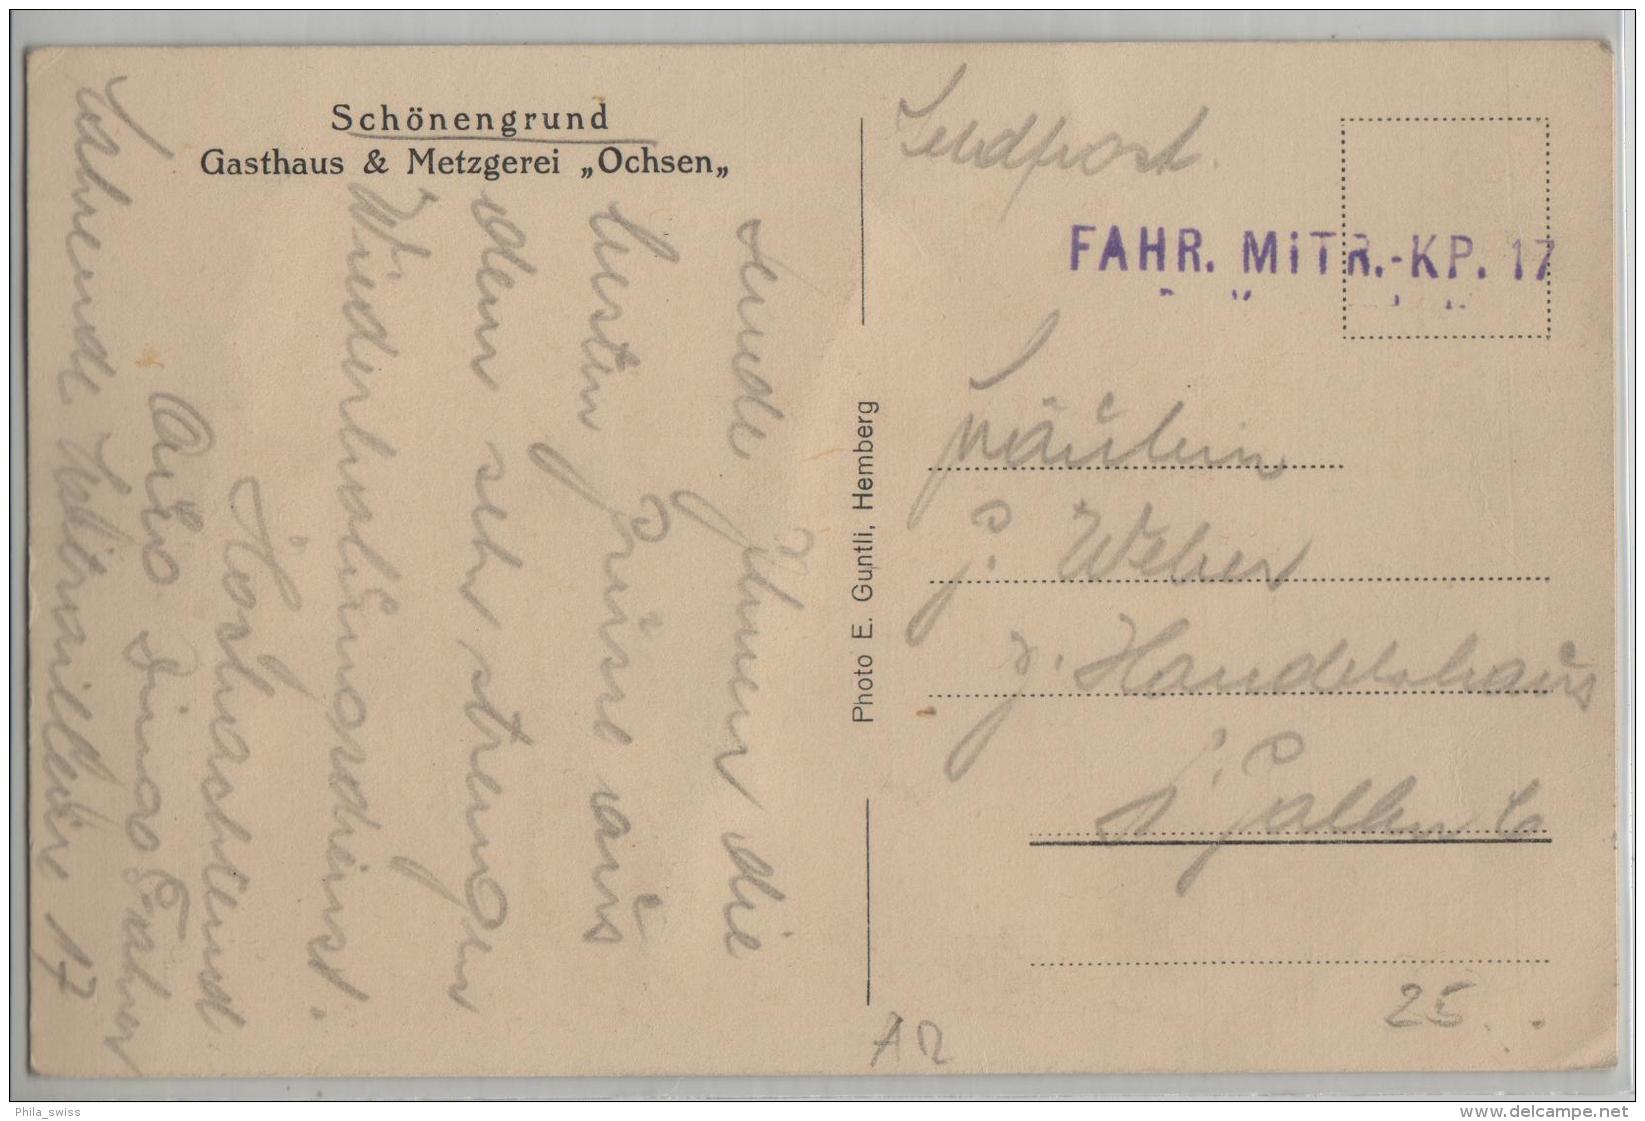 Schönengrund
Gasthaus & Metzgerei „Ochsen„
Sende Ihnen die
besten Grüsse aus
dem sehr strengen
Wiederholungsdienst.
Hochachtend
Fahrer
Fahrende Mitrailleure 17
Photo E. Guntli, Hemberg
Feldpost.
FAHR. MiTR.-KP. 17
Fräulein
J. Weber
z. Handelshaus
St. Gallen C
25.
Phila_swiss
www.delcampe.net